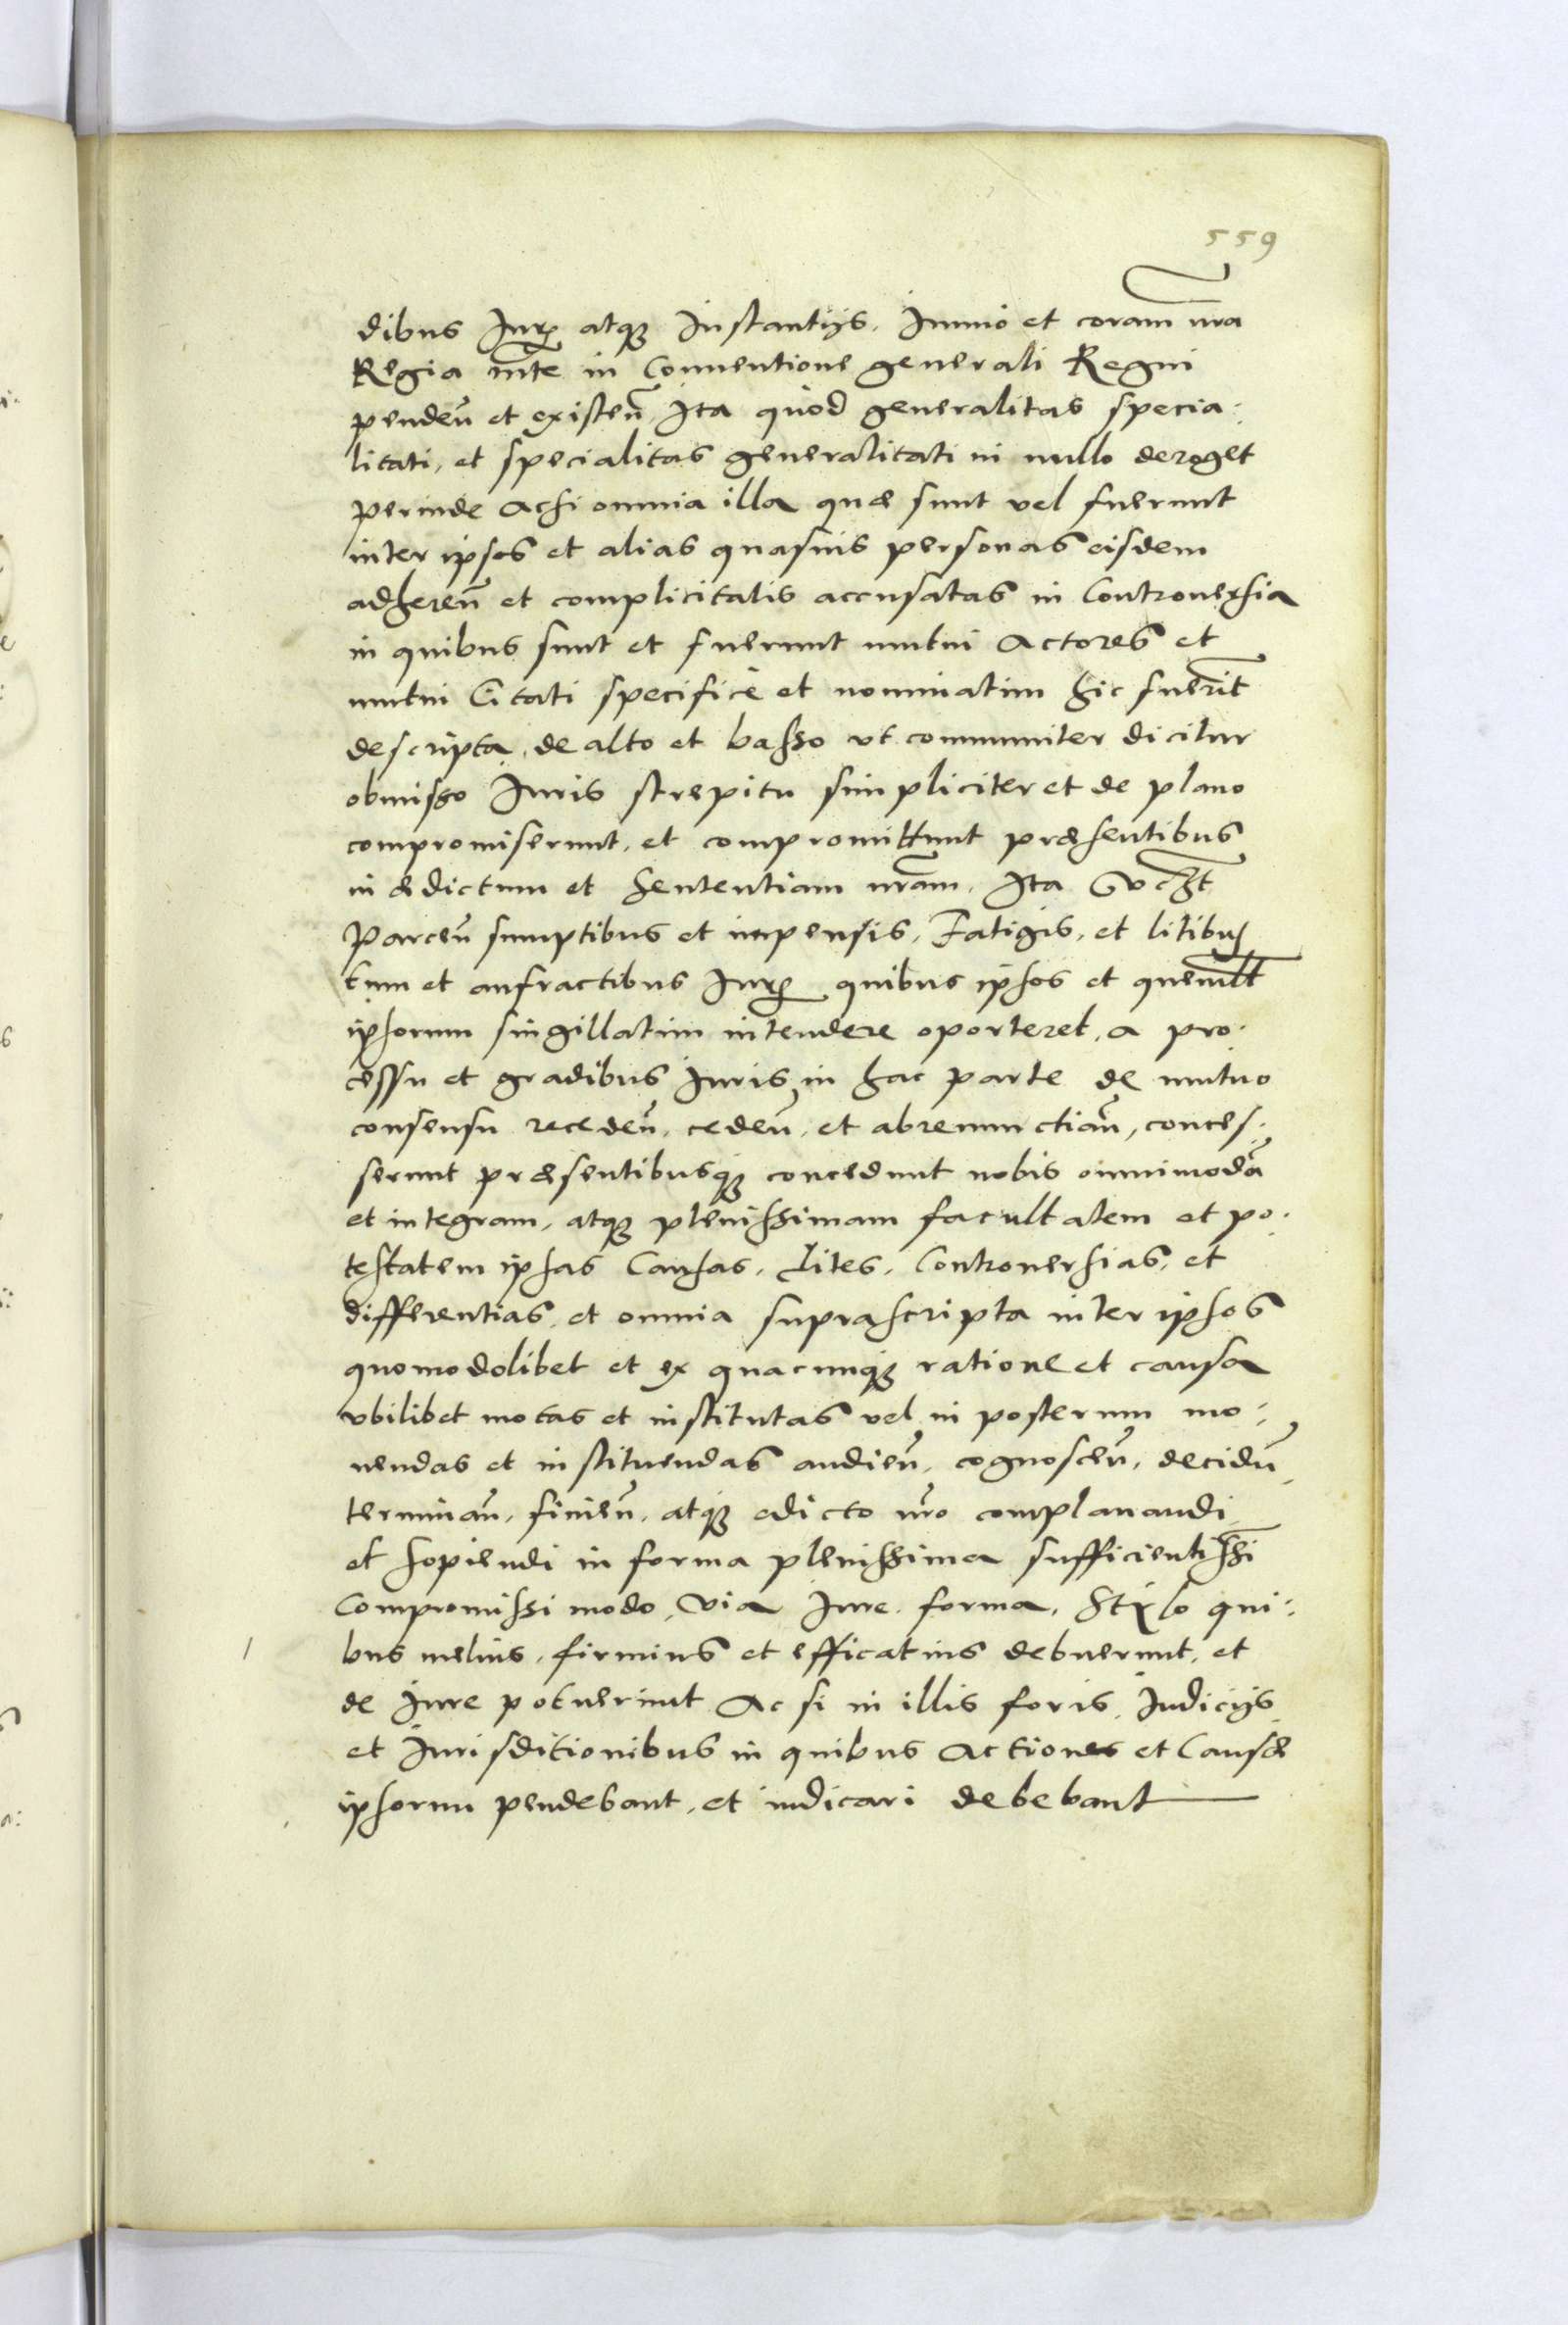 559
dibus Jurꝝ atqꝫ Instantijs. Immo et coram nr̄a
Regia mt̄e in Conuentione generali Regni
penden̄ et existen̄. Ita quòd generalitas specia-
litati, et specialitas generalitati in nullo deroget
perinde Acsi omnia illa quæ sunt vel fuerunt
inter ipsos et alias quasuis personas eisdem
adheren̄ et complicitatis accusatas in Controuersia
in quibus sunt et fuerunt mutui Actores et
mutui Citati specificè et nominatim hic fuerīt
descripta, de alto et basso vt communiter dicitur
obmisso Juris strepitu simpliciter et de plano
compromiserunt, et compromittunt præsentibus
in ædictum et Sententiam nr̄am. Ita
Parcen̄ sumptibus et impensis, Fatigis, et litibus
tum et anfractibus Jurꝝ quibus ipsos et quemlt̄
ipsorum singillatim intendere oporteret, a pro-
cessu et gradibus Juris in hac parte de mutuo
consensu receden̄, ceden̄, et abrenunctian̄, conces-
serunt præsentibusqꝫ concedunt nobis omnimodā
et integram, atqꝫ plenissimam facultatem et po-
testatem ipsas Causas, Lites, Controuersias, et
differentias, et omnia suprascripta inter ipsos
quomodolibet et ex quacunqꝫ ratione et causa
vbilibet motas et institutas vel in posterum mo-
uendas et instituendas audien̄, cognoscen̄, decidn̄,
terminan̄, finien̄, atqꝫ edicto nr̄o complanandi
et sopiendi in forma plenissima sufficientissi
Compromissi modo, via Jure, forma, Stylo qui-
bus melius, firmius et efficatius debuerunt, et
de Jure potuerunt Ac si in illis foris, Judicijs
et Jurisditionibus in quibus Actiones et Causæ
ipsorum pendebant, et iudicari debebant